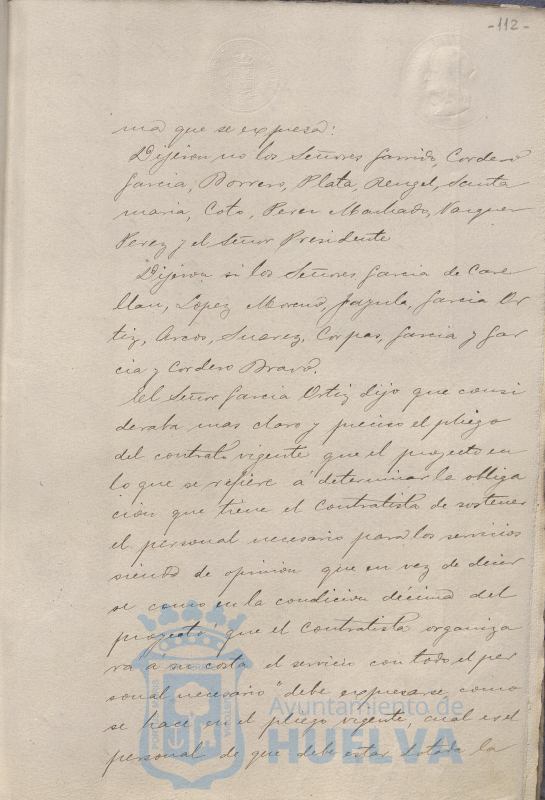 -112-
ma que se expresa:
Dijeron no los Señores Garrido, Cordero
Garcia, Borrero, Plata, Rengel, Santa
maria, Coto, Perez Machado, Vazquez
Perez y el Señor Presidente
Dijeron si los Señores Garcia de Case
llau, Lopez Moreno, Jazula, Garcia Or
tiz, Arcos, Suarez, Corpas, Garcia y Gar
cia y Cordero Bravo.
El Señor Garcia Ortiz dijo que consi
deraba mas claro y preciso el pliego
del contrato vigente que el proyecto en
lo que se refiere á determinar la obliga
cion que tiene el Contratista de sostener
el personal necesario para los servicios
siendo de opinion que en vez de decir
se como en la condicion décima del
proyecto "que el Contratista organiza
rá á su costa el servicio con todo el per
sonal necesario" debe expresarse, como
se hace en el pliego vigente, cual es el
personal de que debe estar dotado la
Ayuntamiento de
HUELVA